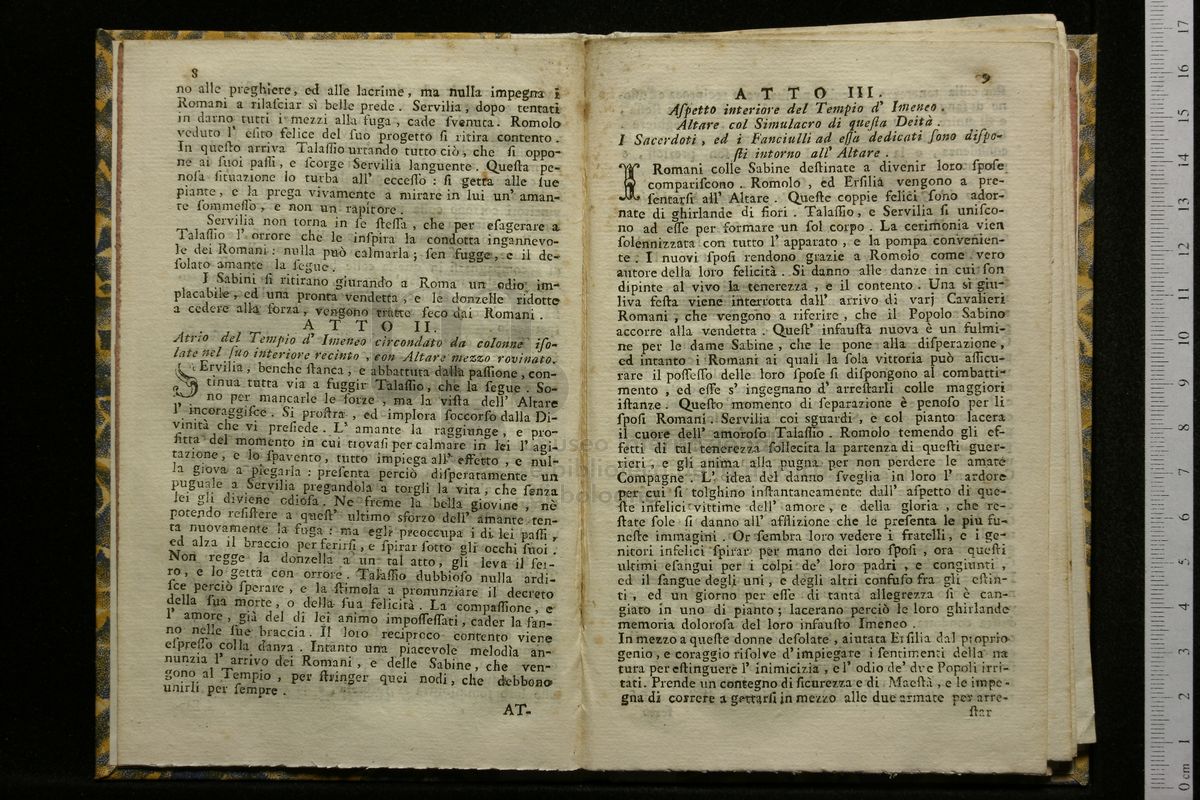 8
no alle preghiere, ed alle lacrime, ma nulla impegna i
Romani a rilaſciar sì belle prede. Servilia, dopo tentati
in darno tutti i mezzi alla fuga, cade ſvenuta. Romolo
veduto l' eſito felice del ſuo progetto ſi ritira contento.
In queſto arriva Talaſſio urtando tutto ciò, che ſi oppo-
ne ai ſuoi paſſi, e ſcorge Servilia languente. Queſta pe-
noſa ſituazione lo turba all' ecceſſo: ſi getta alle ſue
piante, e la prega vivamente a mirare in lui un' aman-
te ſommeſſo, e non un rapitore.
Servilia non torna in ſe ſteſſa, che per eſagerare a
Talaſſio l' orrore che le inſpira la condotta ingannevo-
le dei Romani: nulla può calmarla; ſen fugge, e il de-
ſolato amante la ſegue.
I Sabini ſi ritirano giurando a Roma un odio im-
placabile, ed una pronta vendetta, e le donzelle ridotte
a cedere alla forza, vengono tratte ſeco dai Romani.
ATTO II.
Atrio del Tempio d' Imeneo circondato da colonne iſo-
late nel ſuo interiore recinto, con Altare mezzo rovinato.
SErvilia, benche ſtanca, e abbattuta dalla paſſione, con-
tinua tutta via a fuggir Talaſſio, che la ſegue. So-
no per mancarle le forze, ma la viſta dell' Altare
l' incoraggiſce. Si proſtra, ed implora ſoccorſo dalla Di-
vinità che vi preſiede. L' amante la raggiunge, e pro-
fitta del momento in cui trovaſi per calmare in lei l' agi-
tazione, e lo ſpavento, tutto impiega all' effetto, e nul-
la giova a piegarla: preſenta perciò diſperatamente un
puguale a Servilia pregandola a torgli la vita, che ſenza
lei gli diviene odioſa. Ne freme la bella giovine, nè
potendo reſiſtere a queſt' ultimo sforzo dell' amante ten-
ta nuovamente la fuga: ma egli preoccupa i di lei paſſi,
ed alza il braccio per ferirſi, e ſpirar ſotto gli occhi ſuoi.
Non regge la donzella a un tal atto, gli leva il fer-
ro, e lo getta con orrore. Talaſſio dubbioſo nulla ardi-
ſce perciò ſperare, e la ſtimola a pronunziare il decreto
della ſua morte, o della ſua felicità. La compaſſione, e
l' amore, già del di lei animo impoſſeſſati, cader la fan-
no nelle ſue braccia. Il loro reciproco contento viene
eſpreſſo colla danza. Intanto una piacevole melodìa an-
nunzia l' arrivo dei Romani, e delle Sabine, che ven-
gono al Tempio, per ſtringer quei nodi, che debbono
unirli per ſempre.
AT-
9
ATTO III.
Aſpetto interiore del Tempio d' Imeneo.
Altare col Simulacro di queſta Deità.
I Sacerdoti, ed i Fanciulli ad eſſa dedicati ſono diſpo-
ſti intorno all' Altare.
I Romani colle Sabine deſtinate a divenir loro ſpoſe
compariſcono. Romolo, ed Erſilia vengono a pre-
ſentarſi all' Altare. Queſte coppie felici ſono ador-
nate di ghirlande di fiori. Talaſſio, e Servilia ſi uniſco-
no ad eſſe per formare un ſol corpo. La cerimonia vien
ſolennizzata con tutto l' apparato, e la pompa convenien-
te. I nuovi ſpoſi rendono grazie a Romolo come vero
autore della loro felicità. Si danno alle danze in cui ſon
dipinte al vivo la tenerezza, e il contento. Una sì giu-
liva feſta viene interrotta dall' arrivo di varj Cavalieri
Romani, che vengono a riferire, che il Popolo Sabino
accorre alla vendetta. Queſt' infauſta nuova è un fulmi-
ne per le dame Sabine, che le pone alla diſperazione,
ed intanto i Romani ai quali la ſola vittoria può aſſicu-
rare il poſſeſſo delle loro ſpoſe ſi diſpongono al combatti-
mento, ed eſſe s' ingegnano d' arreſtarli colle maggiori
iſtanze. Queſto momento di ſeparazione è penoſo per li
ſpoſi Romani. Servilia coi sguardi, e col pianto lacera
il cuore dell' amoroſo Talaſſio. Romolo temendo gli ef-
fetti di tal tenerezza ſollecita la partenza di queſti guer-
rieri, e gli anima alla pugna per non perdere le amate
Compagne. L' idea del danno ſveglia in loro l' ardore
per cui ſi tolghino inſtantaneamente dall' aſpetto di que-
ſte infelici vittime dell' amore, e della gloria, che re-
ſtate ſole ſi danno all' afflizione che le preſenta le piu fu-
neſte immagini. Or ſembra loro vedere i fratelli, e i ge-
nitori infelici ſpirar per mano dei loro ſpoſi, ora queſti
ultimi eſangui per i colpi de' loro padri, e congiunti,
ed il ſangue degli uni, e degli altri confuſo fra gli eſtin-
ti, ed un giorno per eſſe di tanta allegrezza ſi è can-
giato in uno di pianto; lacerano perciò le loro ghirlande
memoria doloroſa del loro infauſto Imeneo.
In mezzo a queſte donne deſolate, aiutata Erſilia dal proprio
genio, e coraggio riſolve d' impiegare i ſentimenti della na
tura per eſtinguere l' inimicizia, e l' odio de' due Popoli irri-
tati. Prende un contegno di ſicurezza e di Maeſtà, e le impe-
gna di correre a gettarſi in mezzo alle due armate per arre-
ſtar